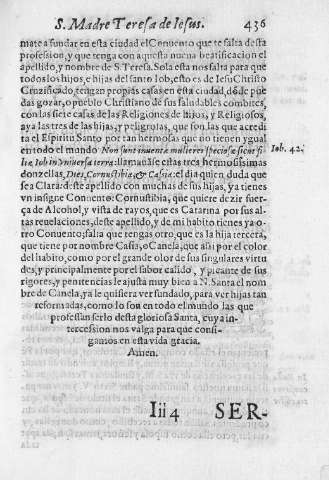 S. Madre Teresa de Iesus. 436
mate a fundar en esta ciudad el Conuento que te falta desta
profession, y que tenga con aquesta nueua beatificacion el
apellido, y nombre de S. Teresa. Sola esta nos falta para que
todos los hijos, e hijas del santo Iob, esto es de Iesu Christo
Crucificado, tengan propias casas en esta ciudad, dõde pue
das gozar, o pueblo Christiano de sus saludables combites,
con las siete casas de las Religiones de hijos, y Religiosos,
aya las tres de las hijas, y peligrolas, que son las que acredi
ta el Espiritu Santo por tan hermosas que no tienen ygual
en todo el mundo Non sunt inuentæ mulieres speciosæ sicut fi-
Iob. 42.
liæ Iob in vniuersa terra: llamauãse estas tres hermosissimas
donzellas, Dies, Cornustibia, & Casia: el dia quien duda que
sea Clara? deste apellido con muchas de sus hijas, ya tienes
vn insigne Conuento: Cornustibia, que quiere dezir fuer-
ça de Alcohol, y vista de rayos, que es Catarina por sus al-
tas reuelaciones, deste apellido, y de mi habito tienes ya o-
tro Conuento; falta que tengas otro, que es la hija tercera,
que tiene por nombre Casia, o Canela, que assi por el color
del habito, como por el grande olor de sus singulares virtu
des, y principalmente por el sabor calido, y picante de sus
rigores, y penitencias le ajusta muy bien a N. Santa el nom
bre de Canela, ya le quisiera ver fundado, para ver hijas tan
reformadas, como lo son en todo el mundo las que
professan serlo desta gloriosa Santa, cuya in-
tercession nos valga para que consi-
gamos en esta vida gracia.
Amen.
Iii 4 SER-